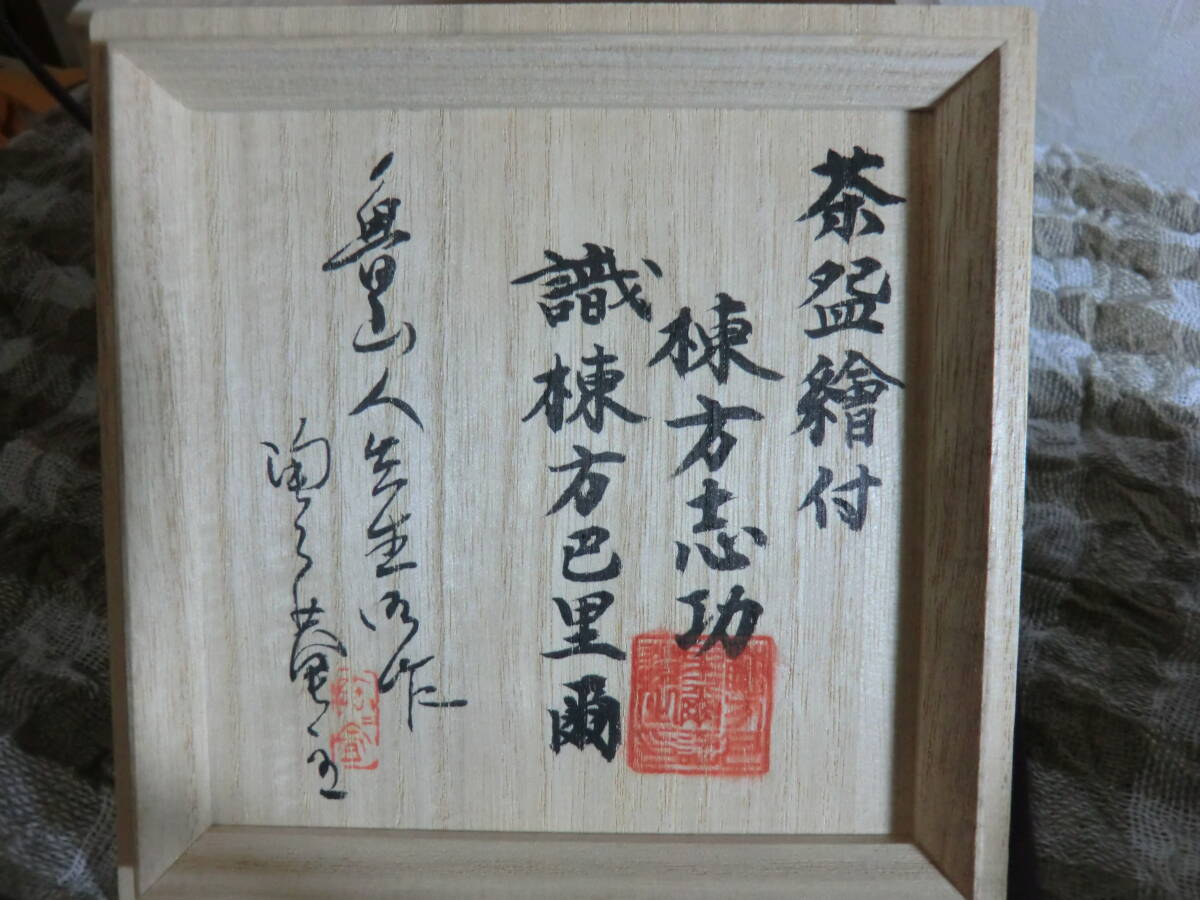 茶盌繪付
棟方志功
識棟方巴里爾
魯山人先生の作